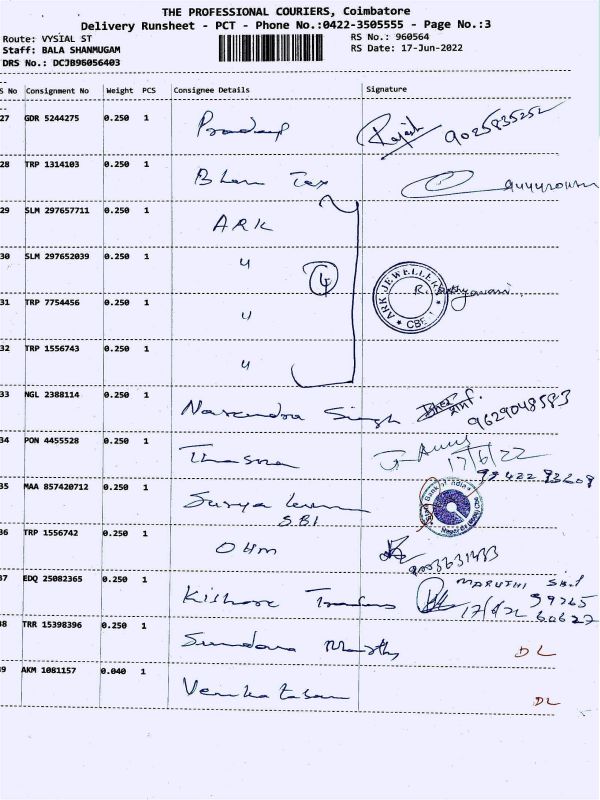 THE PROFESSIONAL COURIERS, Coimbatore
Delivery Runsheet - PCT - Phone No.:0422-3505555 - Page No.:3
Route: VYSIAL ST RS No.: 960564
Staff: BALA SHANMUGAM RS Date: 17-Jun-2022
DRS No.: DCJB96056403
S No Consignment No Weight PCS Consignee Details Signature
27 GDR 5244275 0.250 1 Pradeep Rajesh 9025835252
28 TRP 1314103 0.250 1 Tex
29 SLM 297657711 0.250 1 ARK
30 SLM 297652039 0.250 1 " 4
ARK JEWELLER
31 TRP 7754456 0.250 1 "
CBE
32 TRP 1556743 0.250 1 "
33 NGL 2388114 0.250 1 Narendra Singh 9629048583
34 PON 4455528 0.250 1 17/6/22
35 MAA 857420712 0.250 1 Surya
SBI
Bank of India
36 TRP 1556742 0.250 1 OHM
37 EDQ 25082365 0.250 1 Kishore Traders MARUTHI
38 TRR 15398396 0.250 1 Sundara Moorthy DL
39 AKM 1081157 0.040 1 Venkatesan DL